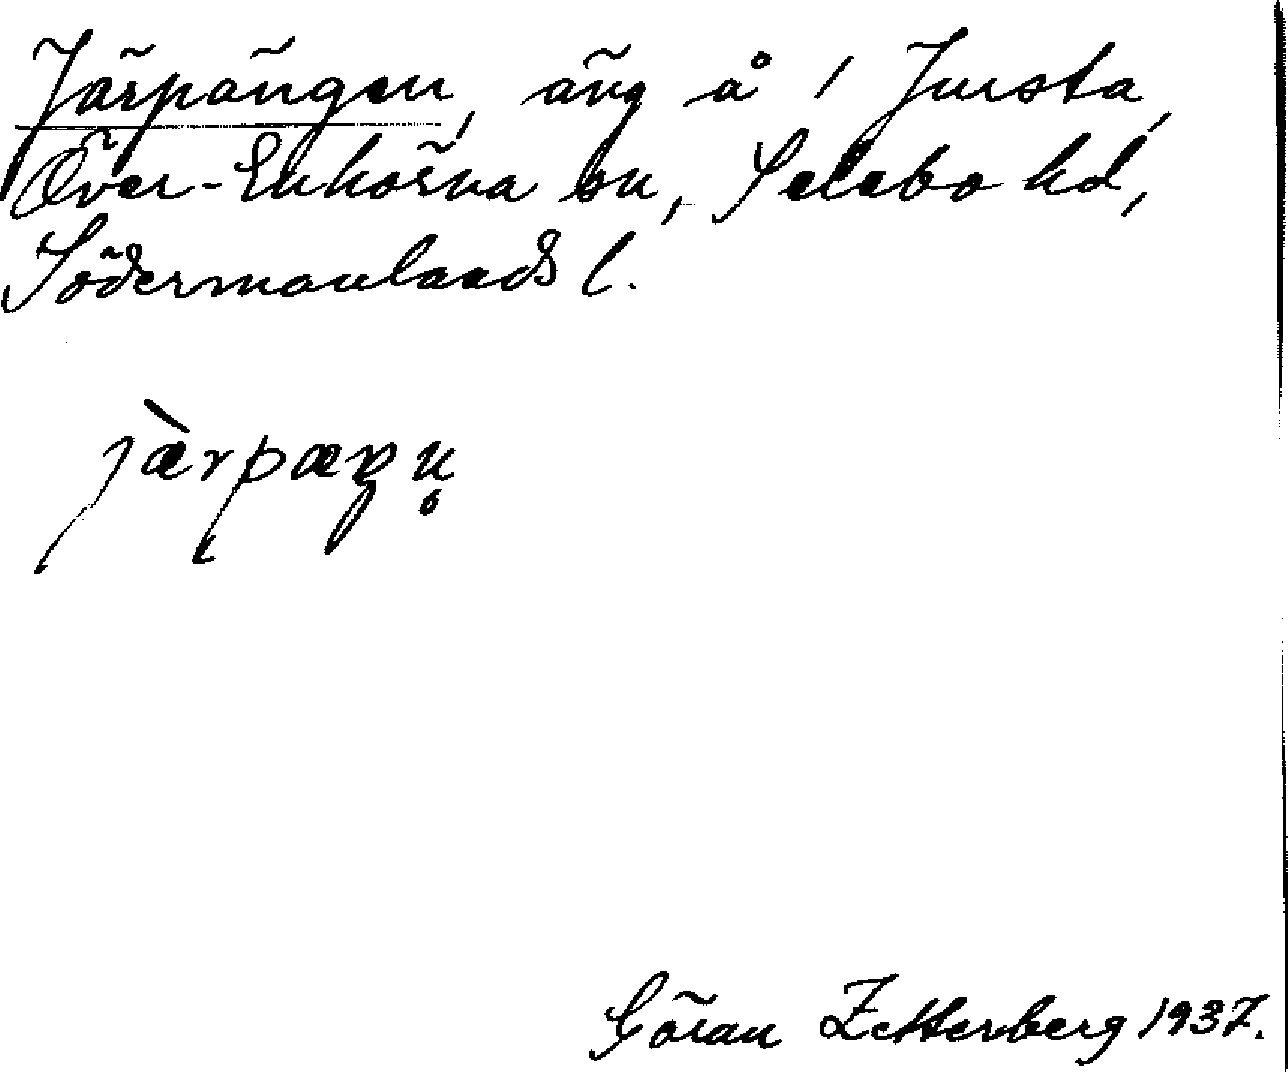 Järpängen, äng å 1 Jursta,
Över-Enhörna sn, Selebo hd,
Södermanlands l.
jæ̀rpæŋn̥
Göran Zetterberg 1937.